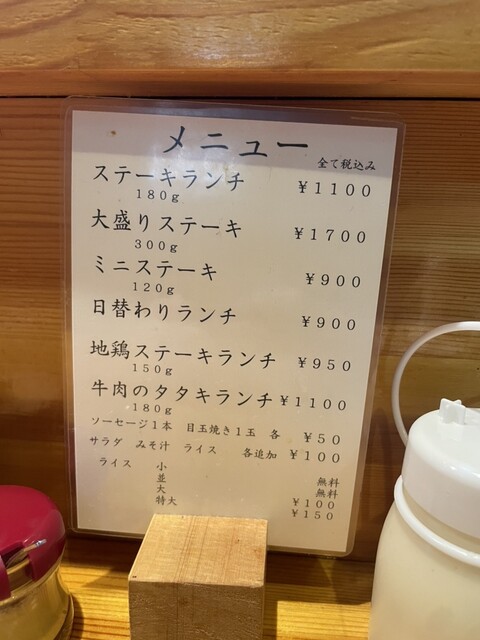 メニュー
全て税込み
ステーキランチ ¥1100
180g
大盛りステーキ ¥1700
300g
ミニステーキ ¥900
120g
日替わりランチ ¥900
地鶏ステーキランチ ¥950
150g
牛肉のタタキランチ ¥1100
180g
ソーセージ1本 目玉焼き1玉 各 ¥50
サラダ みそ汁 ライス 各追加 ¥100
ライス 小 無料
並 無料
大 ¥100
特大 ¥150